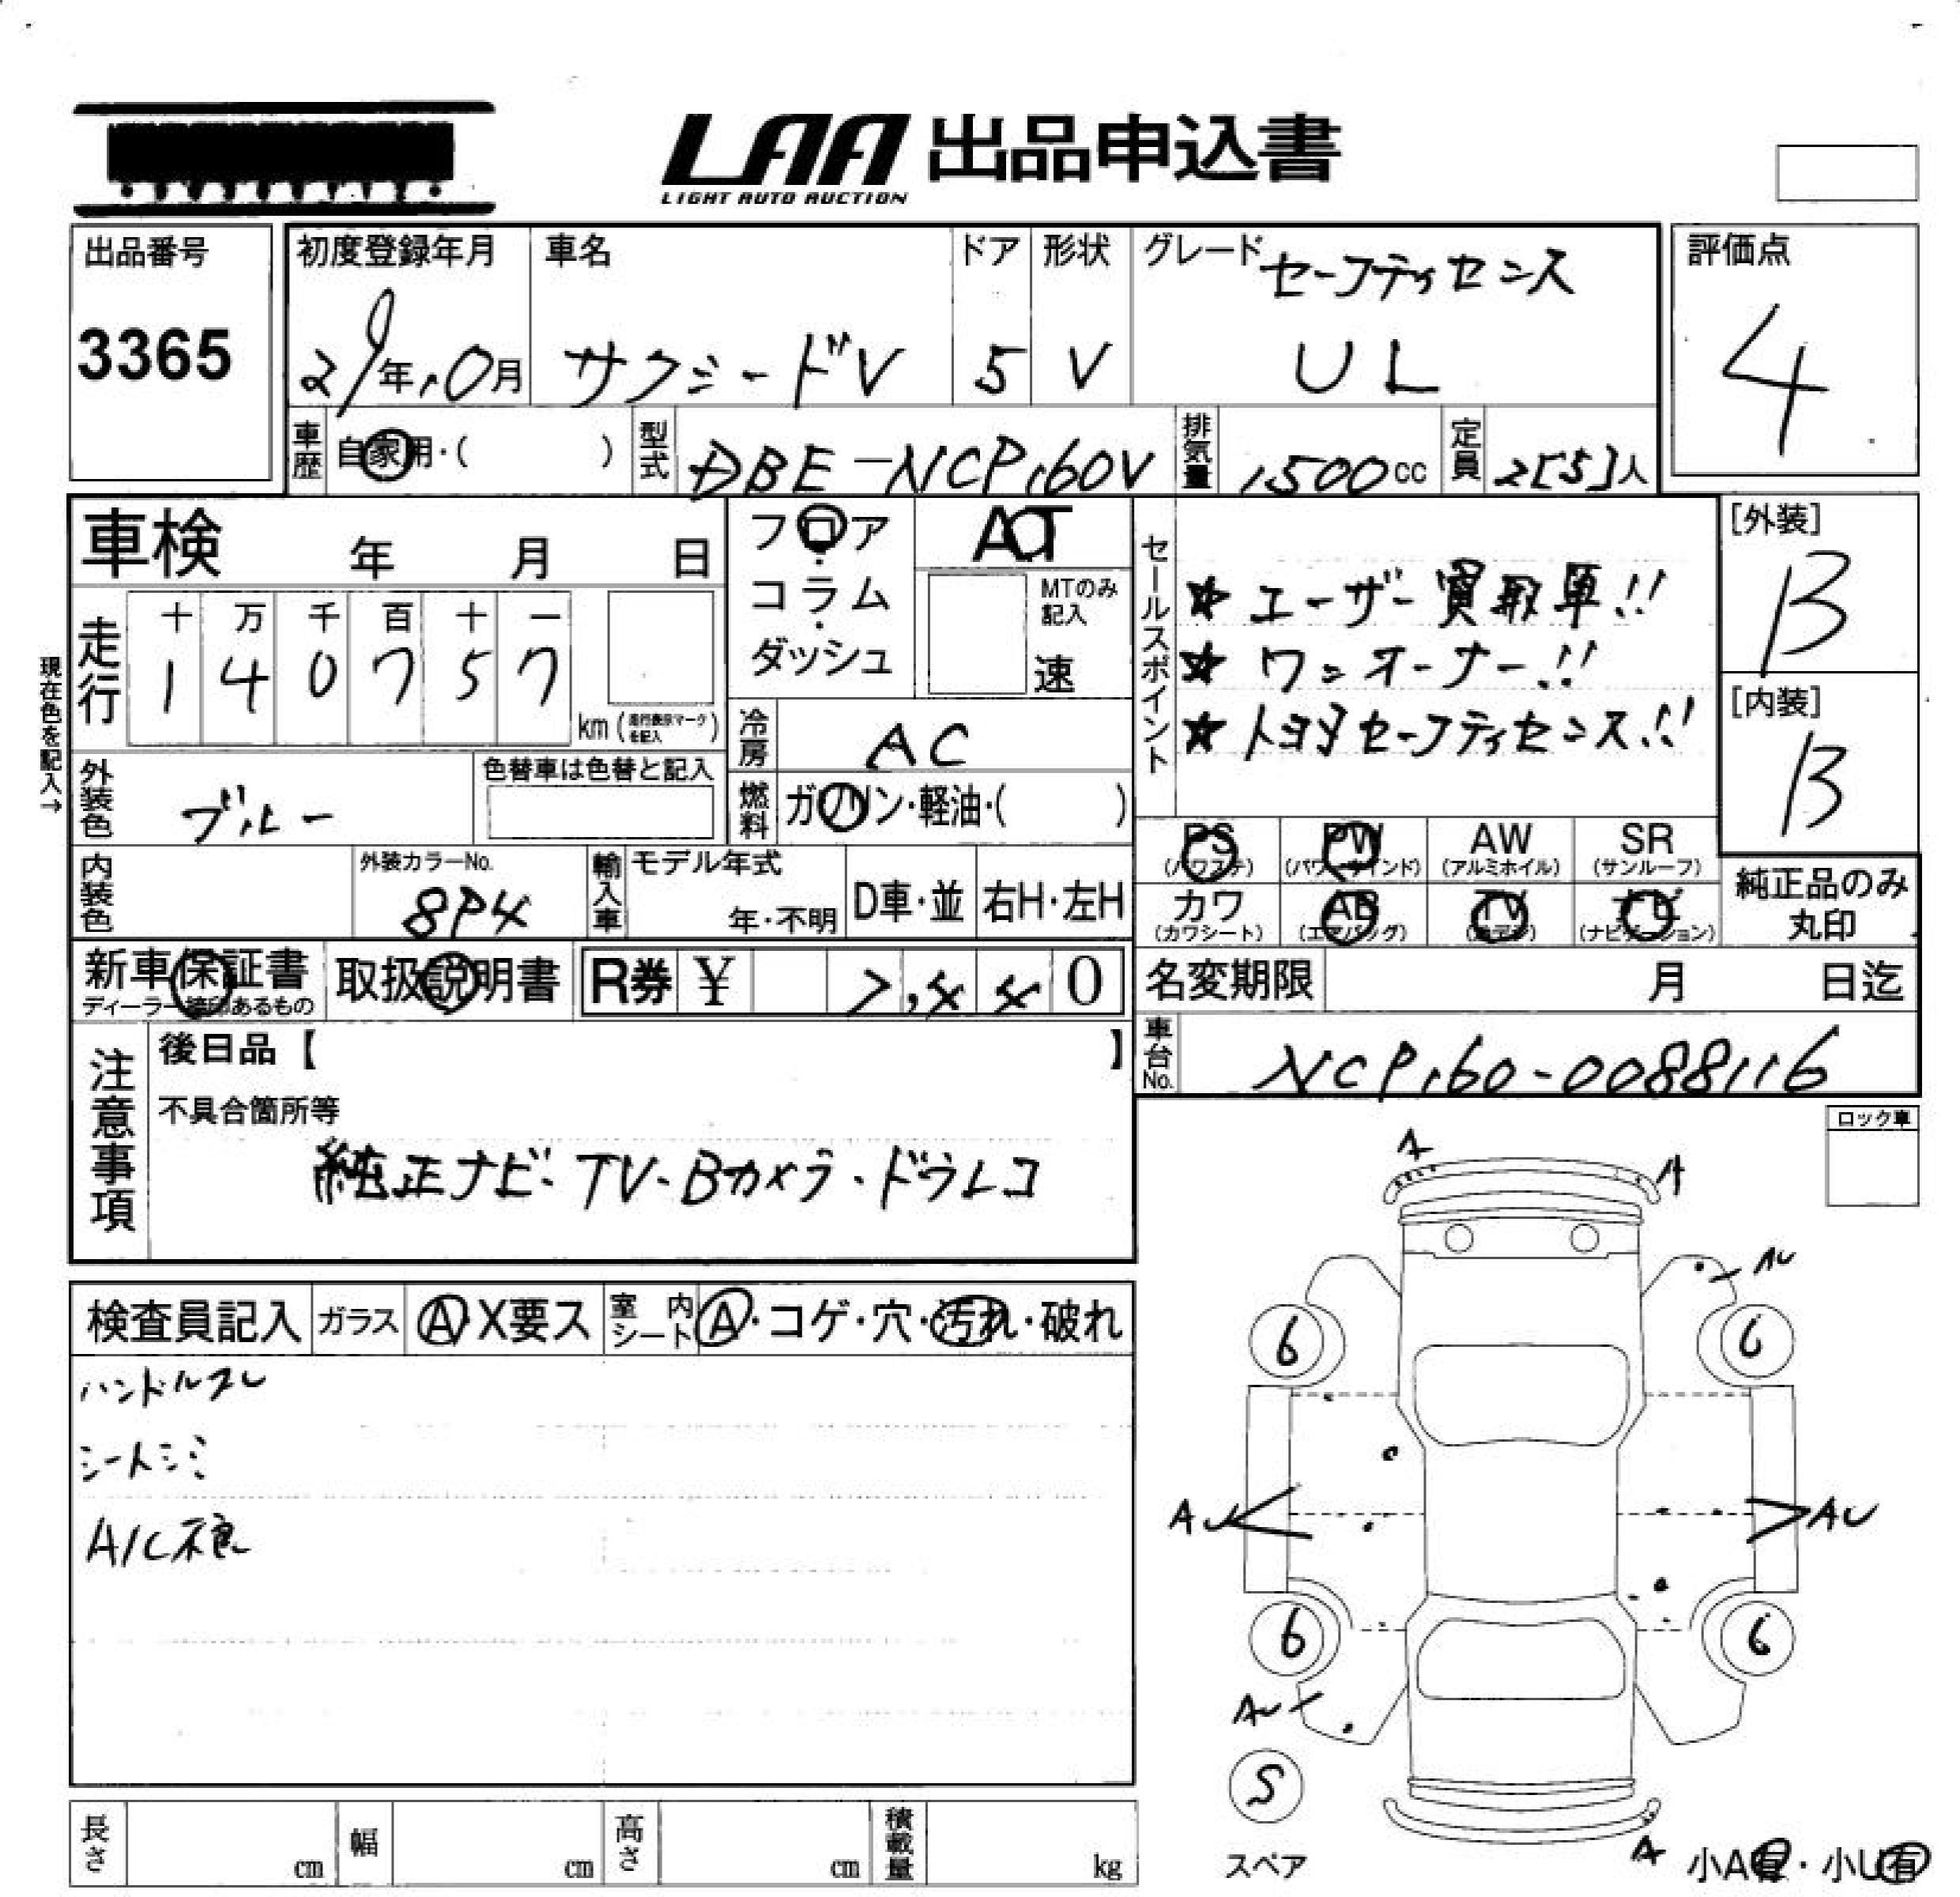 LAA 出品申込書
LIGHT AUTO AUCTION
出品番号
3365
初度登録年月
29年10月
車名
サクシードV
ドア
5
形状
V
グレード セーフティセンス
UL
評価点
4
車歴 自家用・( )
型式 DBE-NCP160V
排気量 1500cc
定員 2[5]人
車検 年 月 日
フロア・
コラム・
ダッシュ
AT
MTのみ
記入
速
セールスポイント
★ユーザー買取車!!
★ワンオーナー!!
★トヨタセーフティセンス!!
[外装]
B
[内装]
B
現在色を記入→
走行
十 万 千 百 十 一
1 4 0 7 5 7
km (走行表示マークを記入)
冷房 AC
燃料 ガソリン・軽油・( )
外装色 ブルー
色替車は色替と記入
内装色
外装カラーNo.
8P4
輸入車 モデル年式
年・不明
D車・並
右H・左H
PS (パワステ)
PW (パワーウインド)
AW (アルミホイル)
SR (サンルーフ)
カワ (カワシート)
AB (エアバッグ)
TV
ナビ (ナビゲーション)
純正品のみ
丸印
新車保証書
ディーラー捺印あるもの
取扱説明書
R券 ¥ 0
名変期限 月 日迄
車台No. NCP160-0088116
注意事項
後日品【 】
不具合箇所等
純正ナビ・TV・Bカメラ・ドラレコ
ロック車
検査員記入
ガラス A・X要ス
室内シート A・コゲ・穴・汚れ・破れ
ハンドルスレ
シートシミ
A/C不良
A
A
AU
6
6
AU
AU
6
6
AU
S
スペア
A
小A有・小U有
長さ cm
幅 cm
高さ cm
積載量 kg